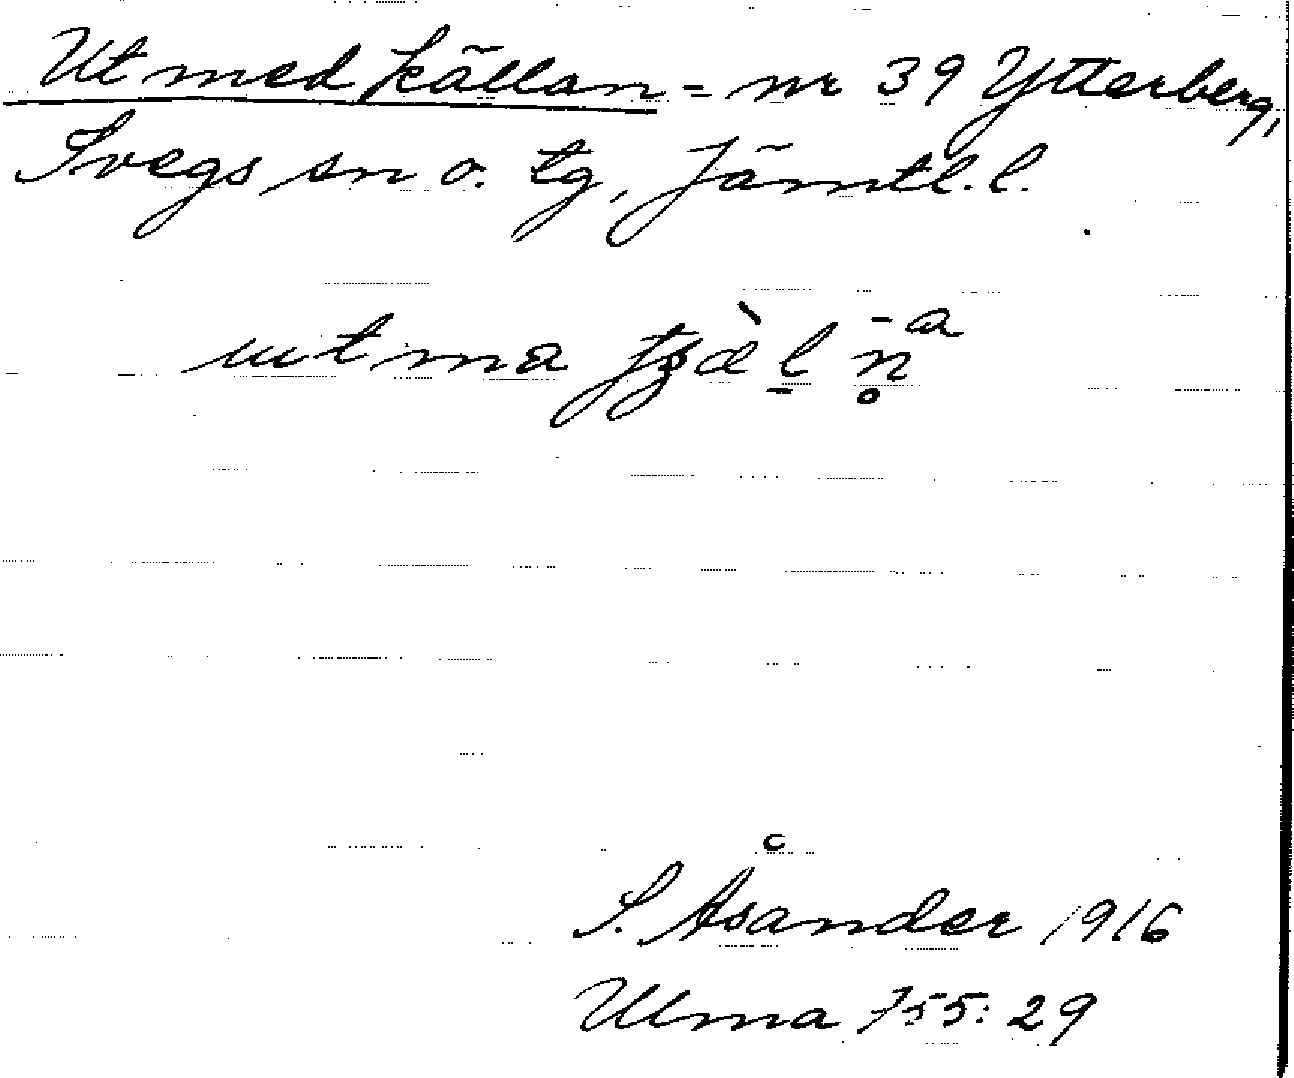 Ut med källan = nr 39 Ytterberg,
Svegs sn o. tg, Jämtl. l.
ut ma
S. Åsander 1916
Ulma 755: 29